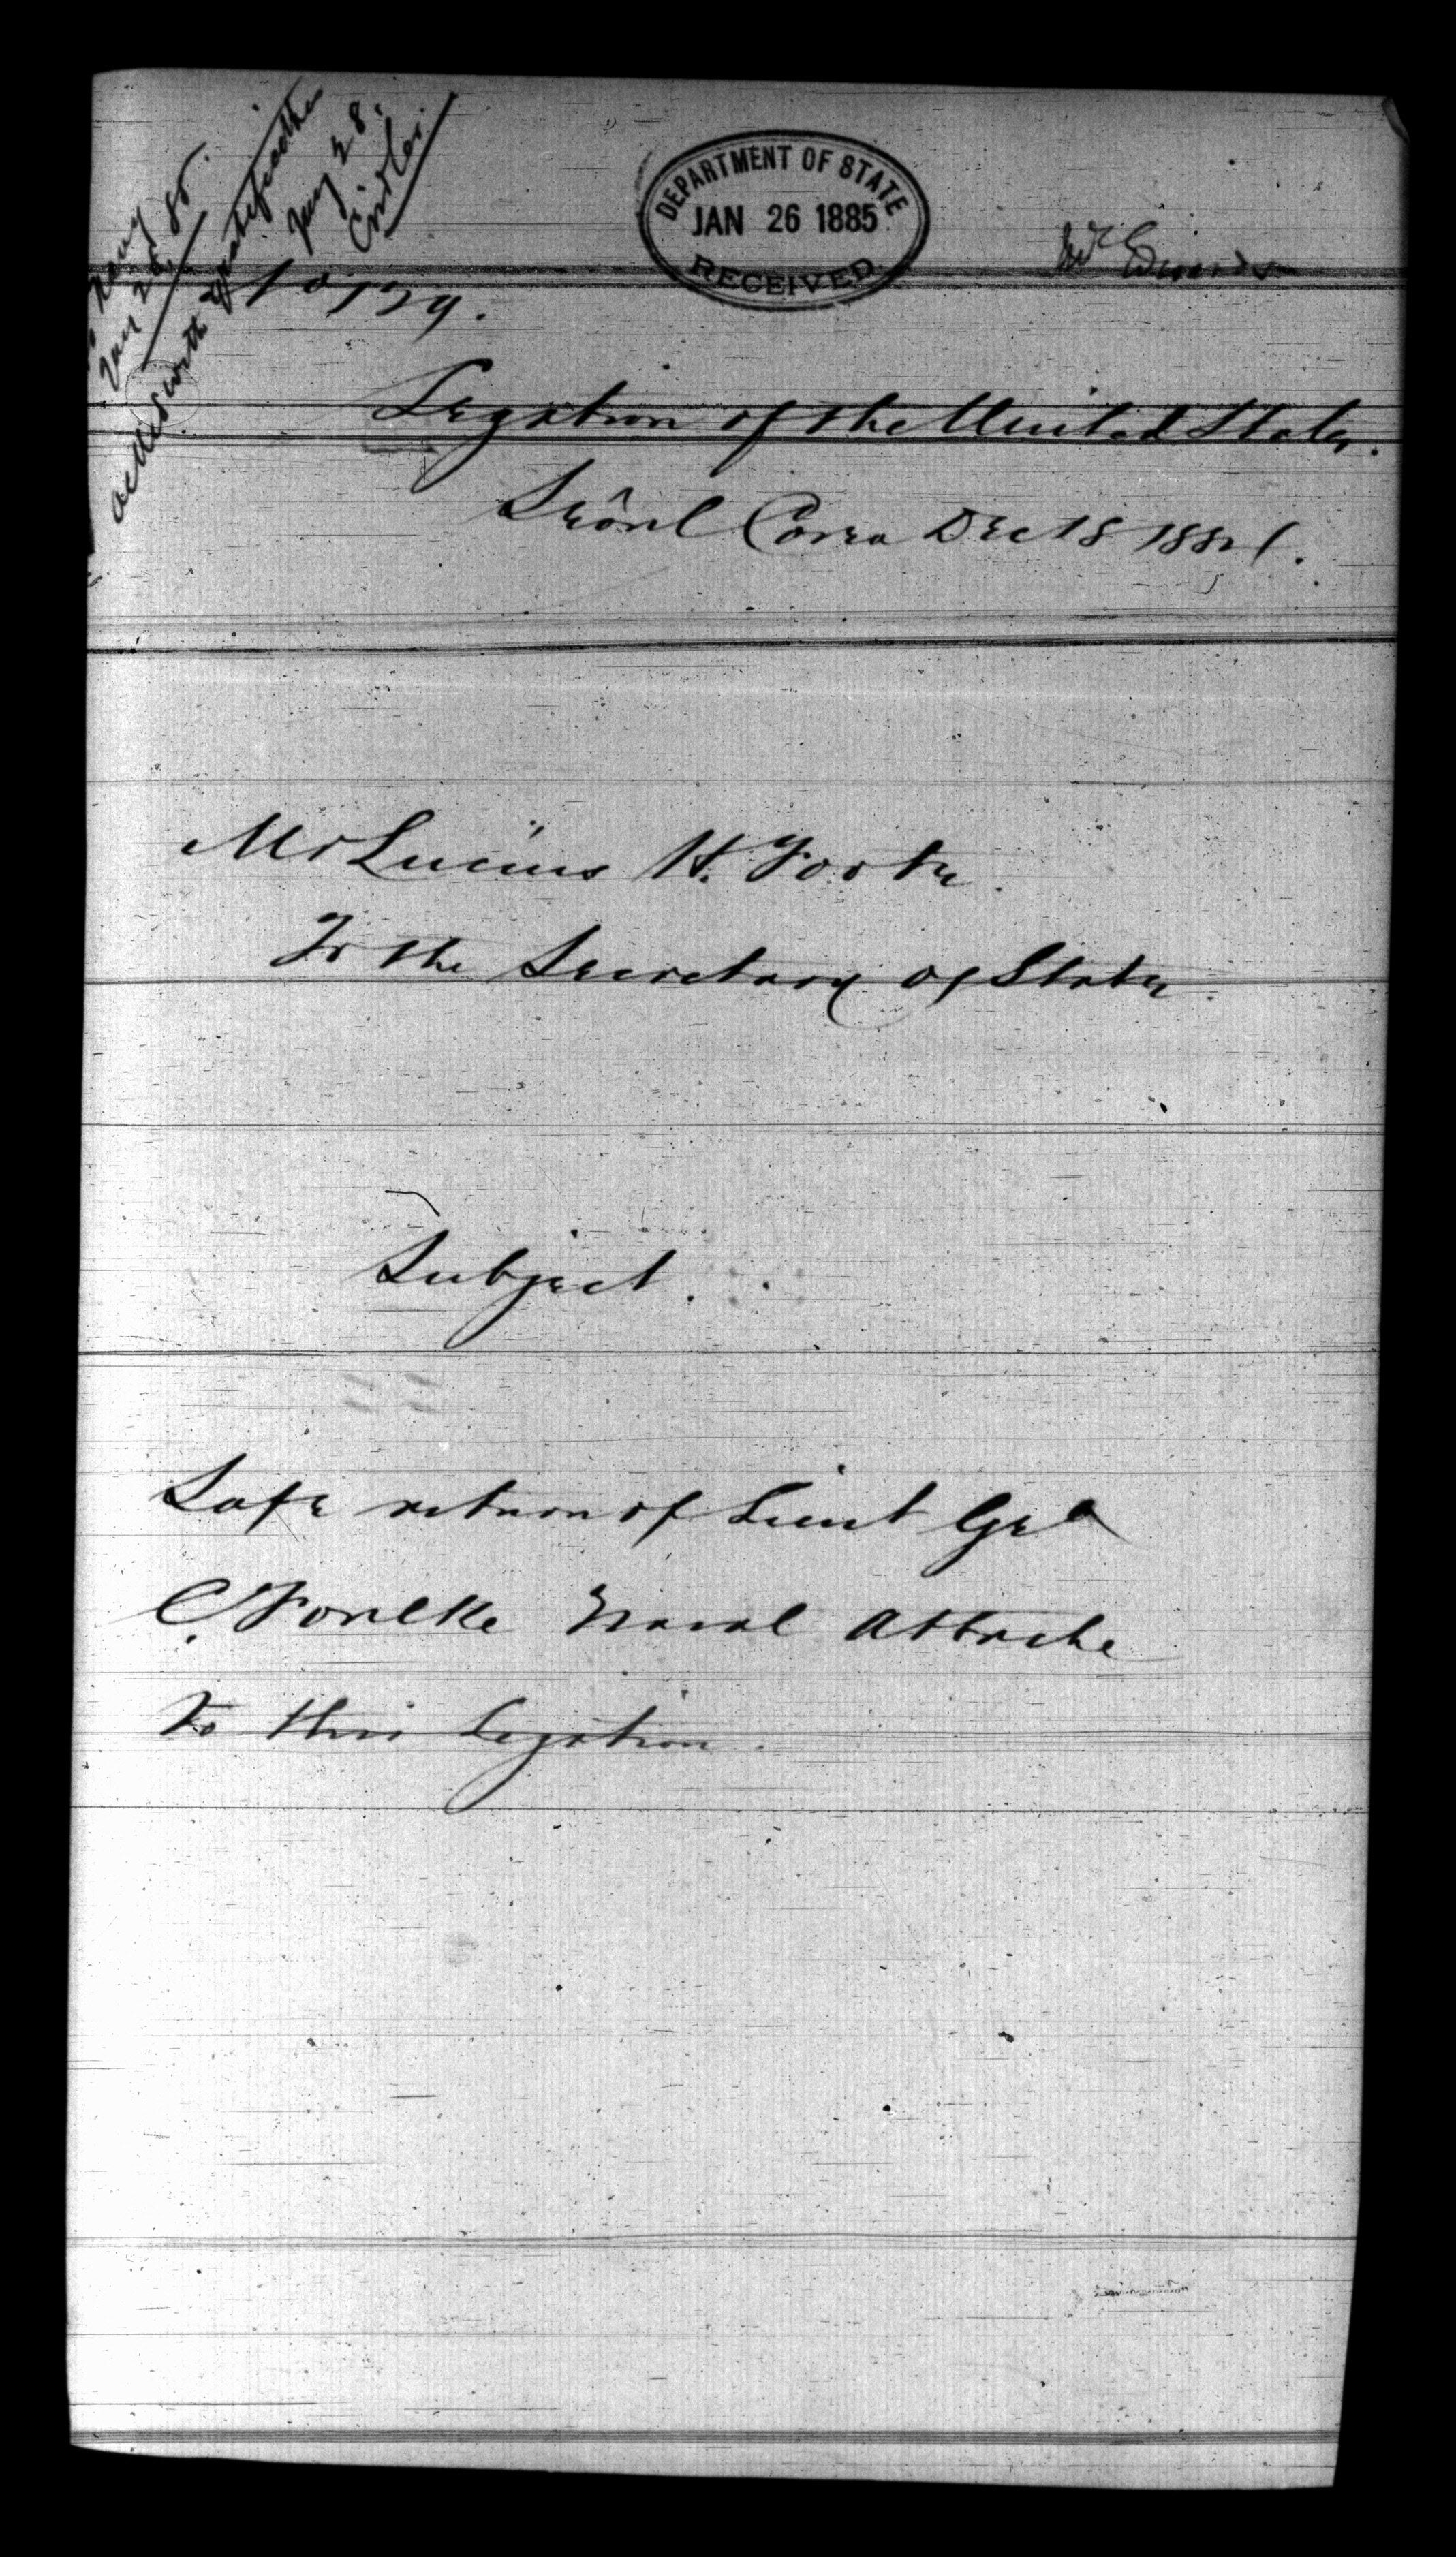 Navy
Jan 28, 85.
ackd with gratification
Jany 28.
DEPARTMENT OF STATE
JAN 26 1885
RECEIVED
Mr Edwards
No 139.
Legation of the United States.
Seôul Corea Dec 18 1884.
Mr Lucius H. Foote.
To the Secretary of State.
Subject.
Safe return of Lieut Geo
C. Foulke Naval Attache
to this Legation.